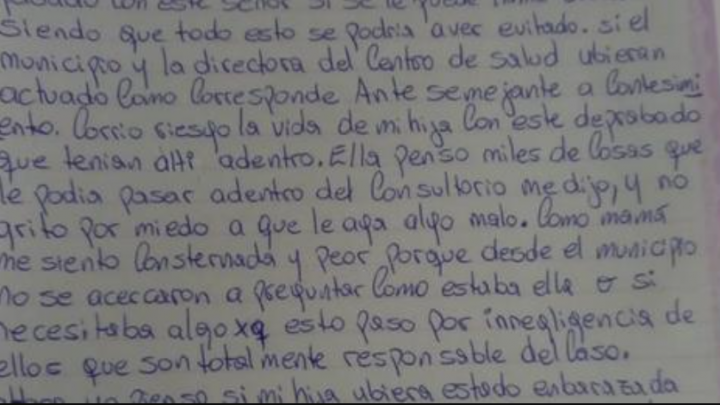 pasado con este señor si se le puede
siendo que todo esto se podria aver evitado. si el
municipio y la directora del Centro de salud ubieran
actuado Como Corresponde Ante semejante a Contesimi
ento. Corrio riesgo la vida de mi hija Con este deprabado
que tenian alli adentro. Ella penso miles de Cosas que
le podia pasar adentro del Consultorio me dijo, y no
grito por miedo a que le aga algo malo. Como mamá
me siento Consternada y peor porque desde el municipio
no se acercaron a preguntar Como estaba ella o si
necesitaba algo xq esto paso por innegligencia de
ellos que son totalmente responsable del Caso.
pienso si mi hija ubiera estado enbarazada